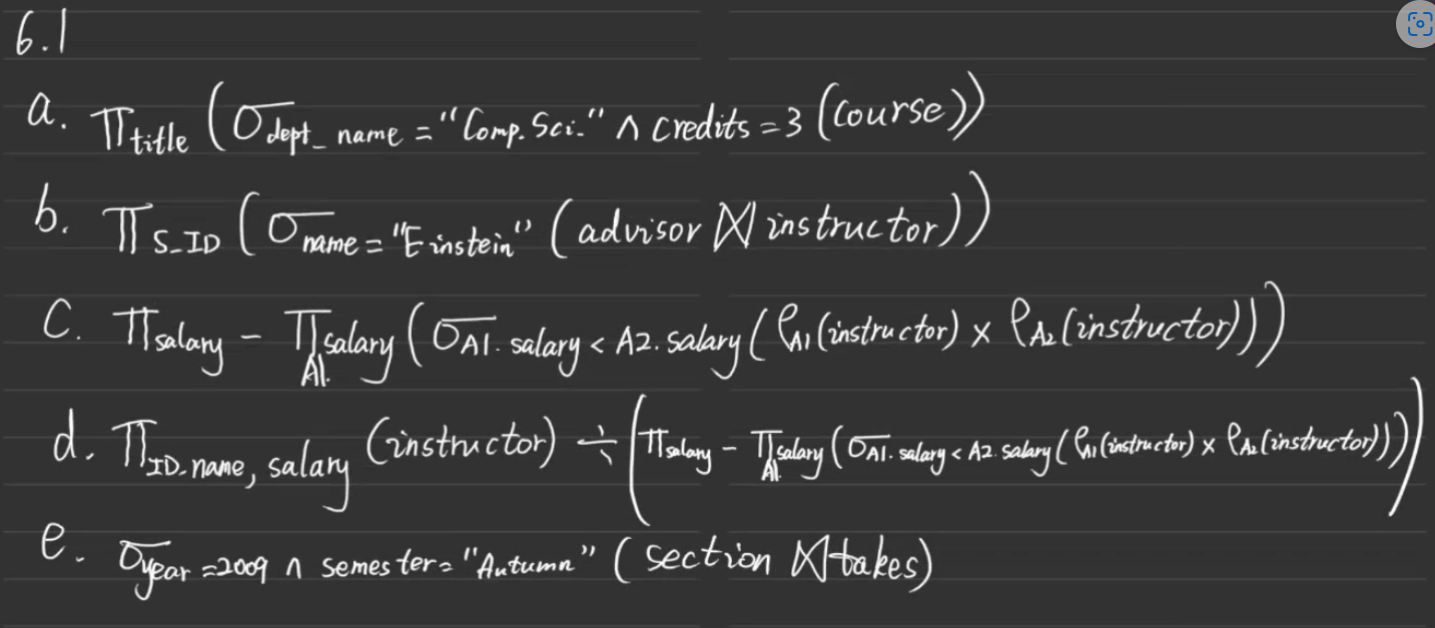 6.1
a. Π title (σ dept_name = "Comp. Sci." ∧ credits = 3 (course))
b. Π S_ID (σ name = "Einstein" (advisor ⋈ instructor))
C. Π salary - Π A1.salary (σ A1.salary < A2.salary (ρ A1 (instructor) × ρ A2 (instructor)))
d. Π ID.name, salary (instructor) ÷ (Π salary - Π A1.salary (σ A1.salary < A2.salary (ρ A1 (instructor) × ρ A2 (instructor))))
e. σ year = 2009 ∧ semester = "Autumn" (section ⋈ takes)